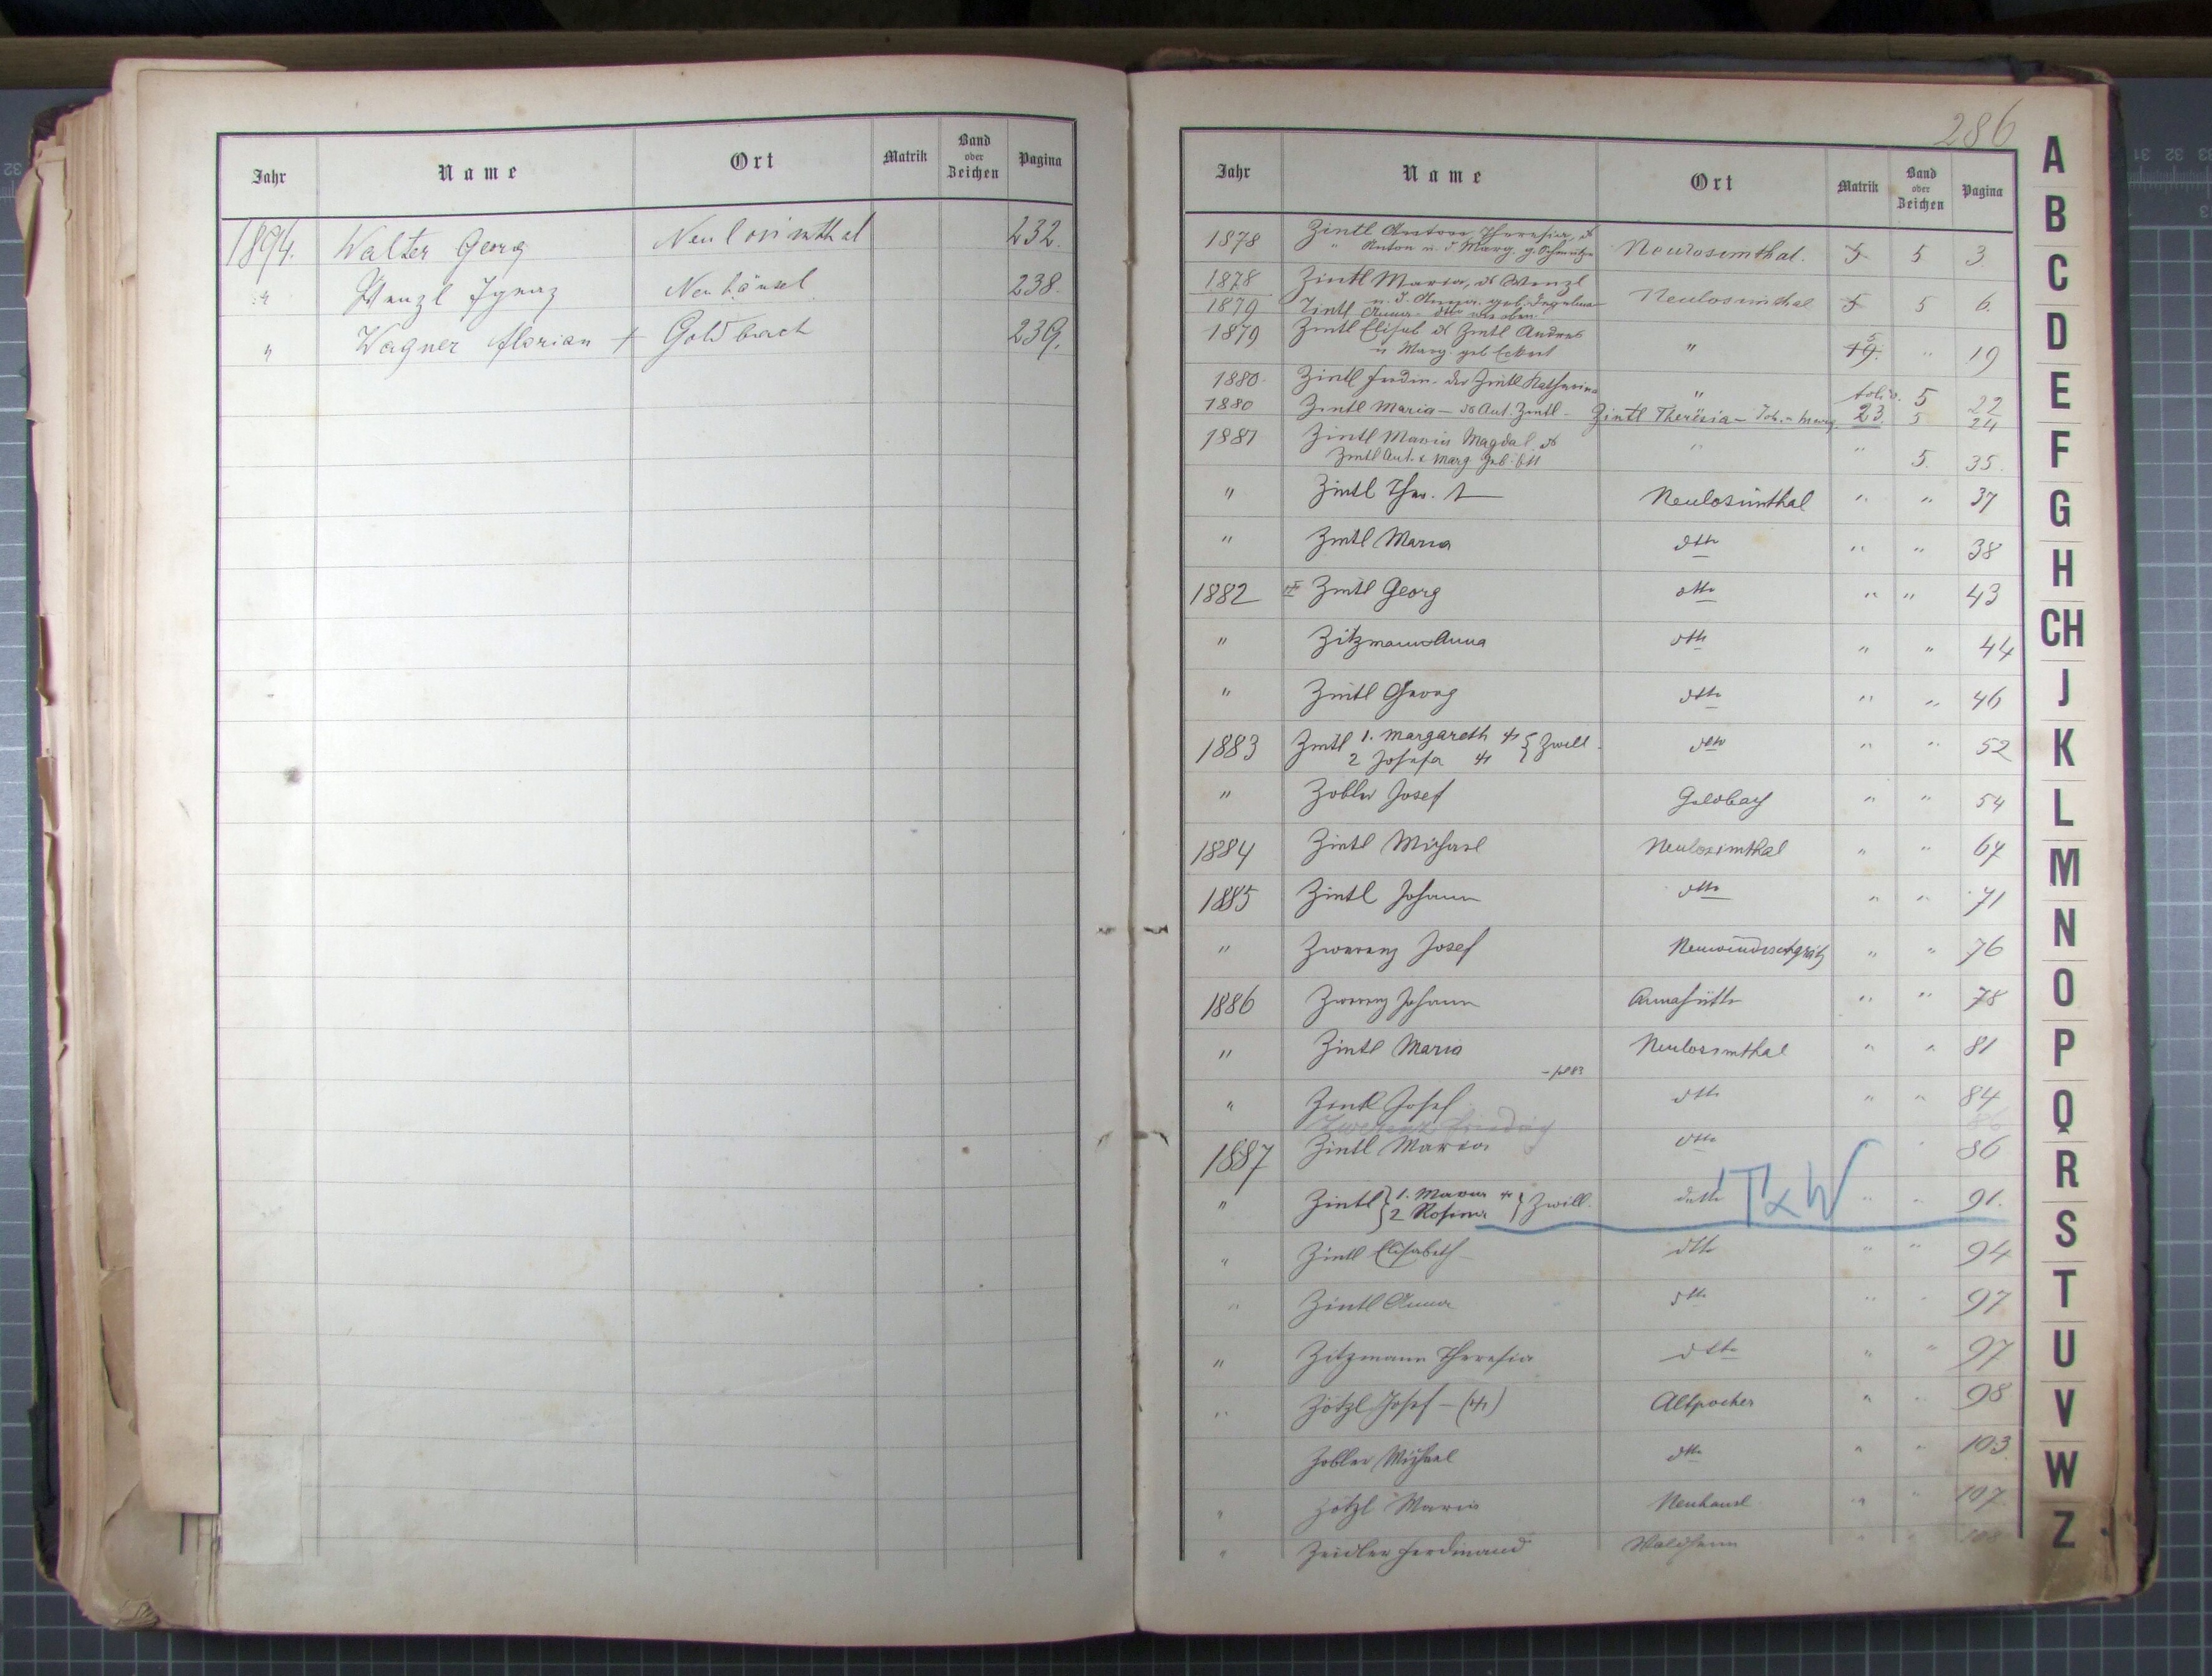 Jahr Name Ort Matrik Band oder Zeichen Pagina
1894. Walter Georg Neulosimthal 232.
" Wenzl Ignaz Neuhäusl 238.
" Wagner Florian + Goldbach 239.
286
Jahr Name Ort Matrik Band oder Zeichen Pagina
1878 Zintl Anton, Theresia, d.
" Anton u. d. Marg. g. Neulosimthal. 5 5 3
1878 Zintl Maria, d. Wenzl
u. d. Anna geb. Neulosimthal 5 5 6.
1879 Zintl Anna dtto wie oben
1879 Zintl Elisab d. Zintl Andreas
u Marg. geb Eckert " 19. 5 " 19
1880. Zintl Ferdin. der Zintl Katharina " 5 22
1880 Zintl Maria - d. Ant. Zintl - Zintl Theresia - Joh. u Marg. 23. 5 24
1881 Zintl Maria Magdal. d.
Zintl Ant. & Marg. geb. " " 5. 35.
" Zintl Ther. Neulosimthal " " 37
" Zintl Maria dtto " " 38
1882 Zintl Georg dtto " " 43
" Zitzmann Anna dtto " " 44
" Zintl Georg dtto " " 46
1883 Zintl 1. Margareth } Zwill. dtto " " 52
2 Josefa
" Zobler Josef Goldbach " " 54
1884 Zintl Michael Neulosimthal " " 67
1885 Zintl Johann dtto " " 71
" Zwerenz Josef Neuwindischgrätz " " 76
1886 Zwerenz Johann Annahütte " " 78
" Zintl Maria Neulosimthal " " 81
" Zintl Josef dtto " " 84
Zwerenz Friedrich 86
1887 Zintl Maria dtto " 86
" Zintl } 1. Maria } Zwill. detto " " 91.
2 Rosina
T x W
" Zintl Elisabeth dtto " " 94
" Zintl Anna dtto " " 97
" Zitzmann Theresia dtto " " 97
" Zötzl Josef Altpocher " " 98
Zobler Michael dtto " " 103
" Zötzl Maria Neuhäusl " " 107
" Zeidler Ferdinand Waldheim " " 108
A
B
C
D
E
F
G
H
CH
J
K
L
M
N
O
P
Q
R
S
T
U
V
W
Z